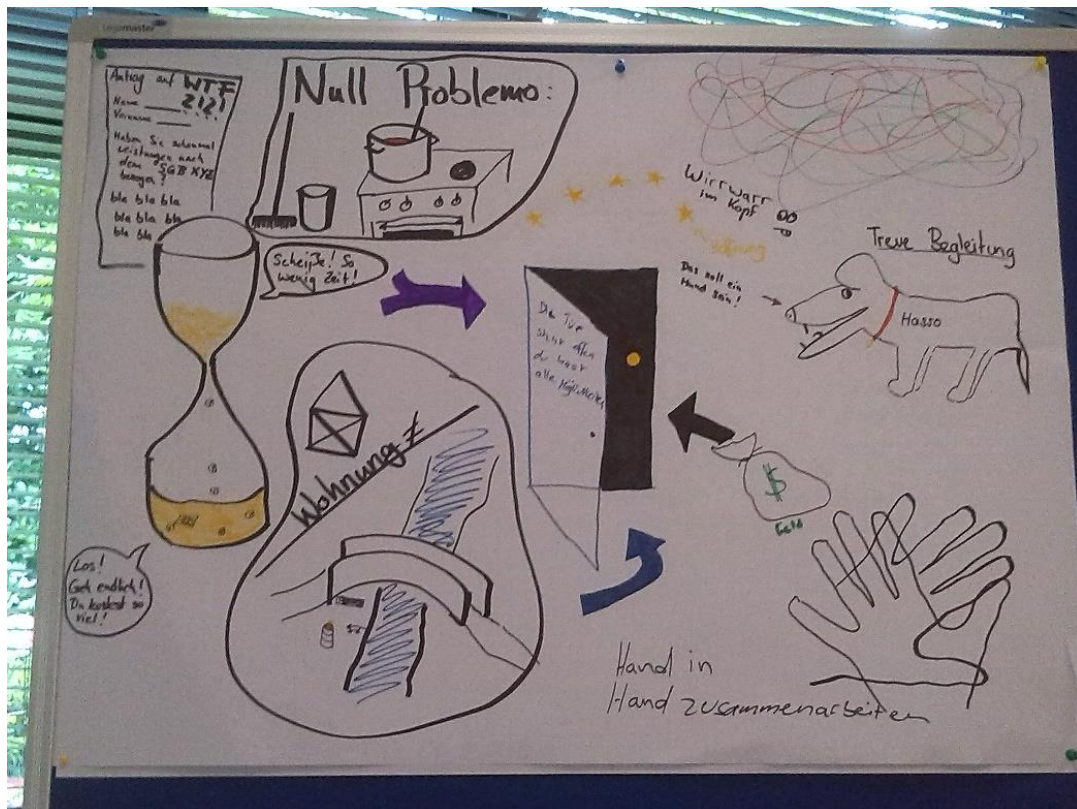 Legamaster
Antrag auf WTF
?!?!
Name
Vorname
Haben Sie schonmal
Leistungen nach
dem SGB XYZ
bezogen?
bla bla bla
bla bla bla
bla bla
Null Problemo:
Scheiße! So
wenig Zeit!
Wirrwarr
im Kopf
Hoffnung
Treue Begleitung
Das soll ein
Hund sein!
Hasso
Die Tür
steht offen
du hast
alle Möglichkeiten
Wohnung
$
Geld
Los!
Geh endlich!
Du kostest so
viel!
Hand in
Hand zusammenarbeiten